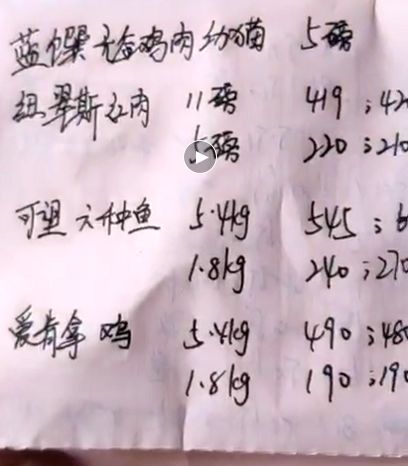 蓝馔无谷鸡肉幼猫 5磅
纽翠斯红肉 11磅 419；42
5磅 220；210
可望 六种鱼 5.4kg 545；6
1.8kg 240；270
爱肯拿 鸡 5.4kg 490；480
1.8kg 190；190